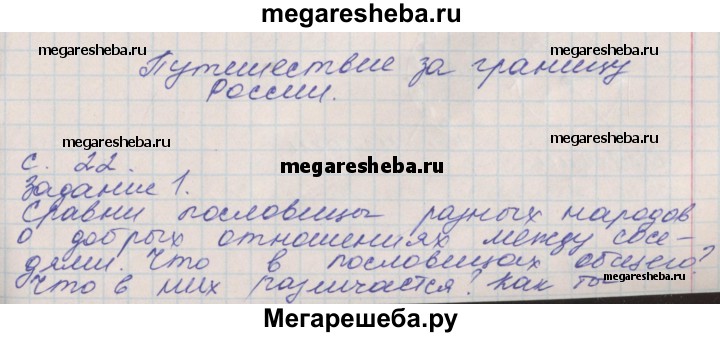 megaresheba.ru
megaresheba.ru
megaresheba.ru
Путешествие за границу
России.
megaresheba.ru
megaresheba.ru
megaresheba.ru
с. 22.
Задание 1.
Сравни пословицы разных народов
о добрых отношениях между сосе-
дями. Что в пословицах общего?
Что в них различается? Как ты
megaresheba.ru
megaresheba.ru
Мегарешеба.ру